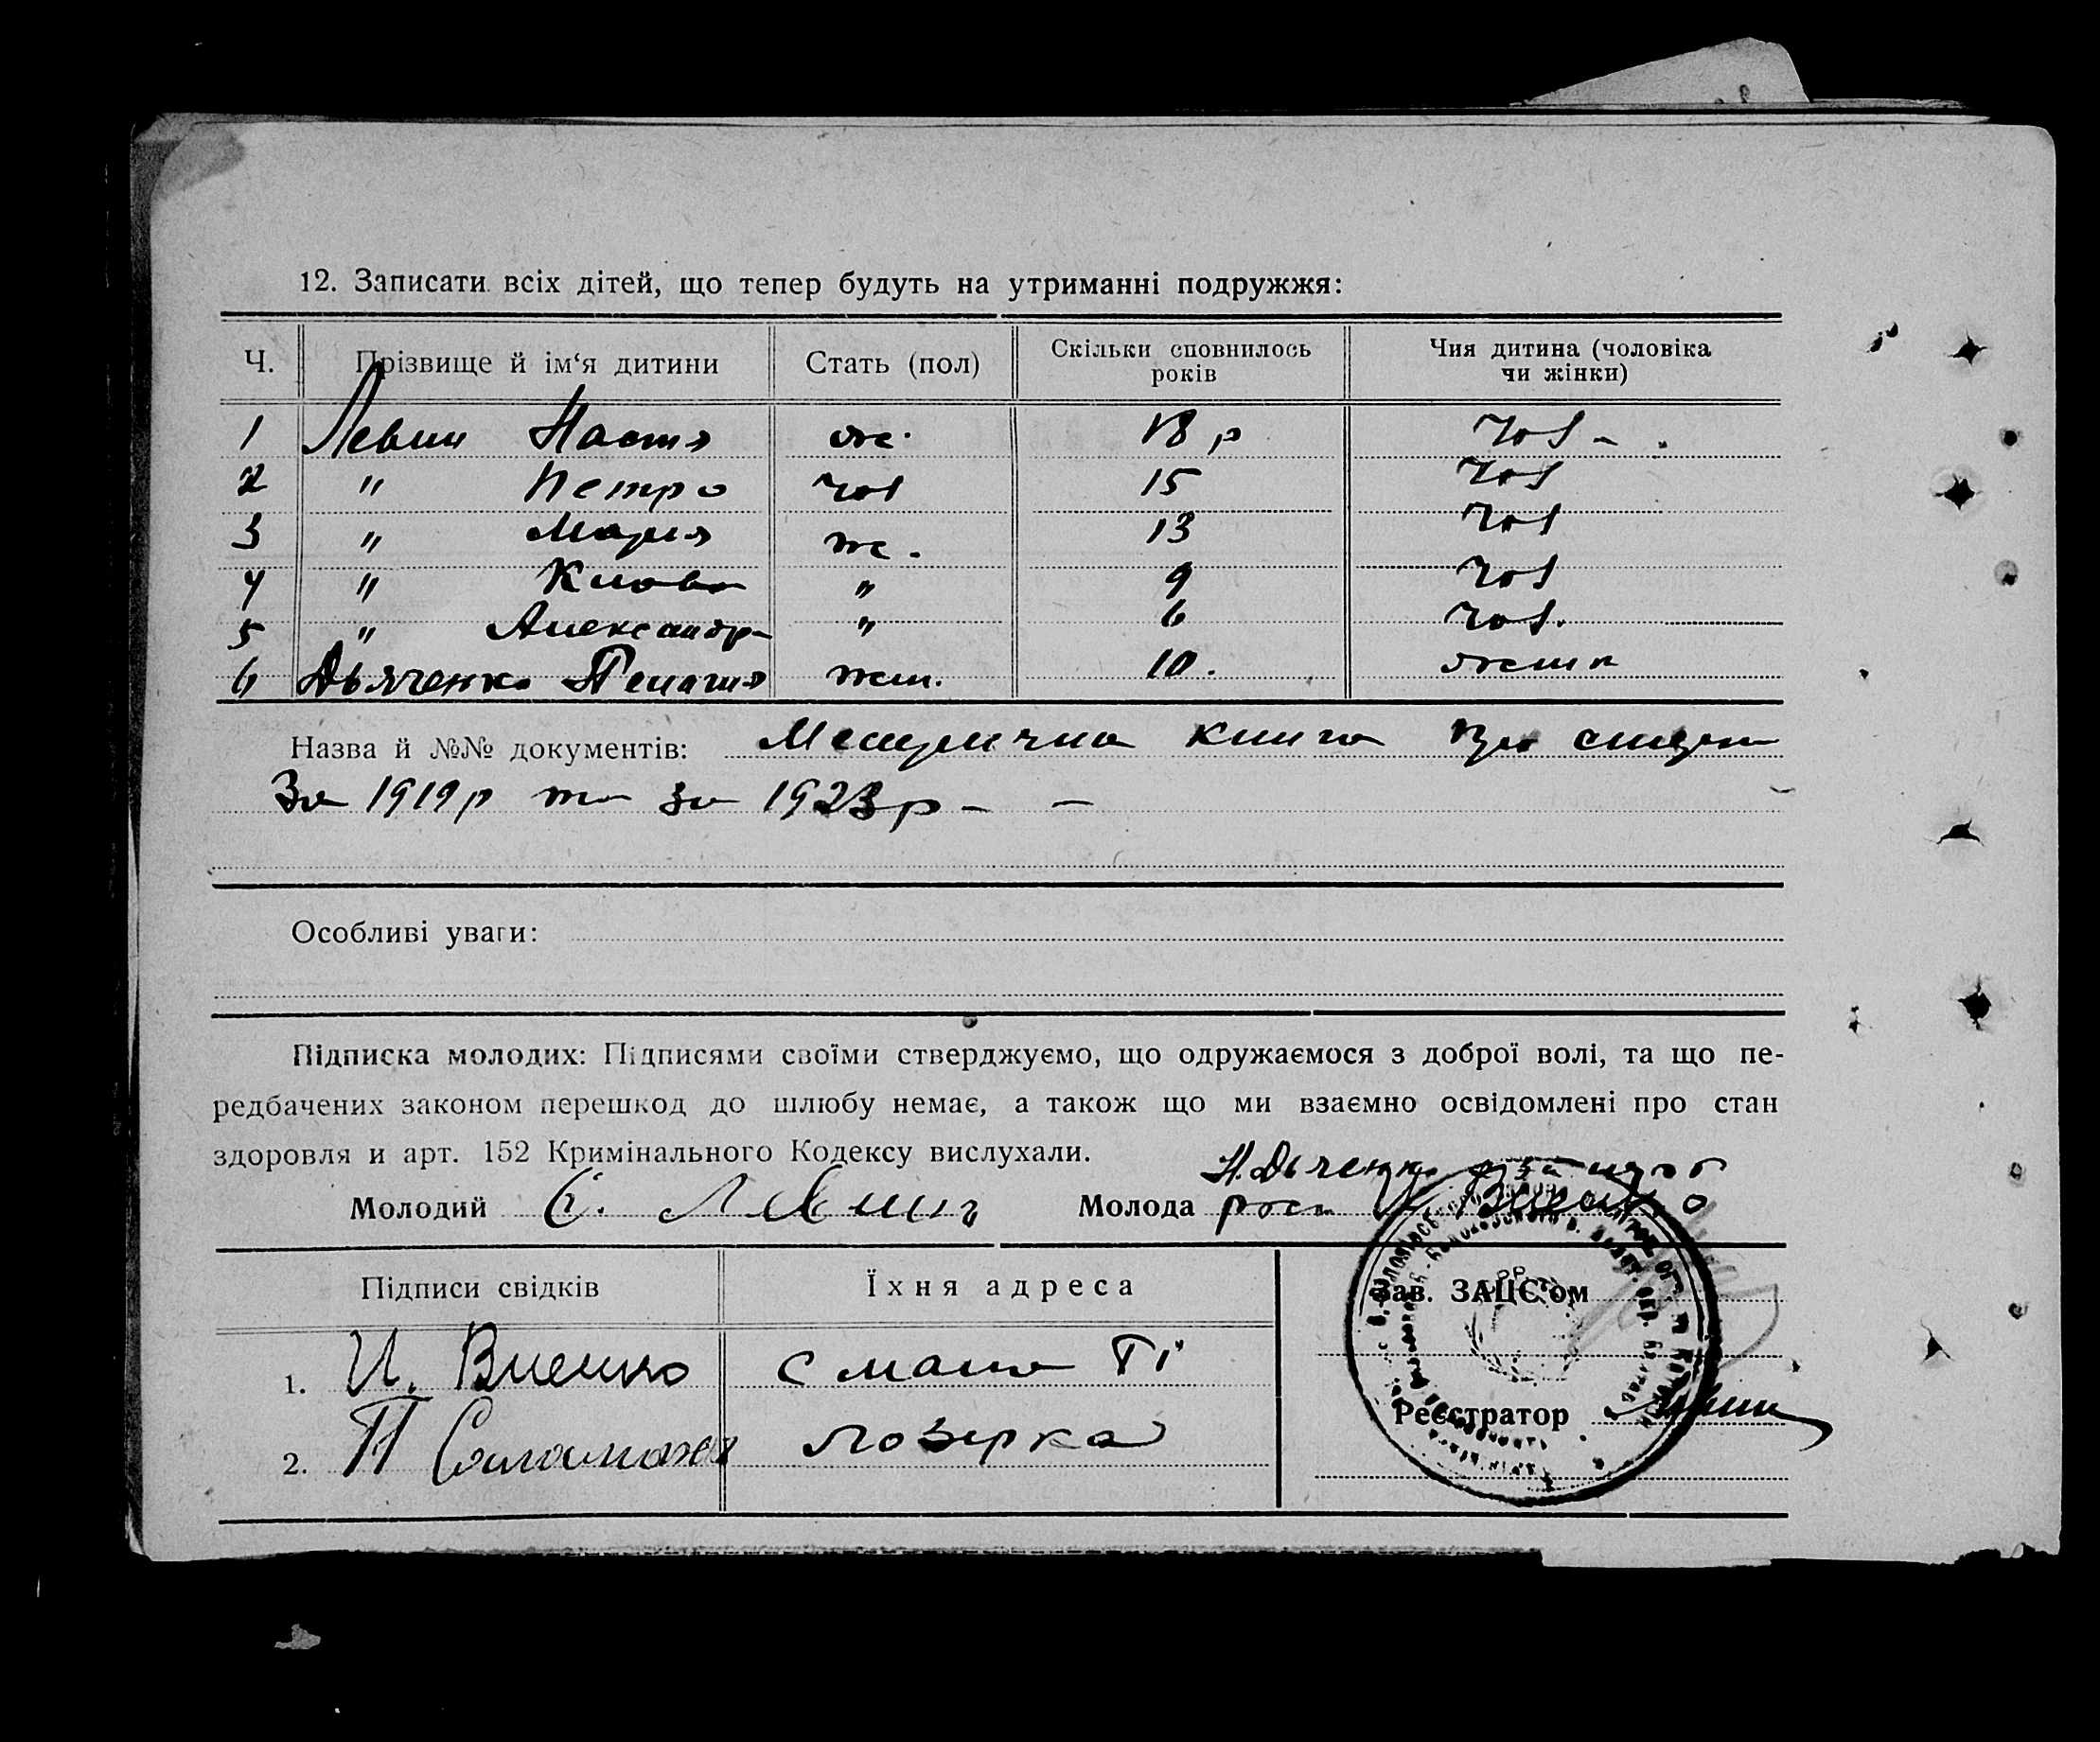 12. Записати всіх дітей, що тепер будуть на утриманні подружжя:
Ч. Прізвище й ім‘я дитини Стать (пол) Скільки сповнилось років Чия дитина (чоловіка чи жінки)
1 Левин Настя ж. 18 р чол
2 " Петро чол 15 чол
3 " Мария ж. 13 чол
4 " " 9 чол
5 " Александр " 6 чол.
6 Дьяченко Пелагия жін. 10. жінк
Назва й №№ документів: Метрична книга про смерть
За 1919 р та за 1923 р -
Особливі уваги:
Підписка молодих: Підписями своїми стверджуємо, що одружаємося з доброї волі, та що пе-
редбачених законом перешкод до шлюбу немає, а також що ми взаємно освідомлені про стан
здоровля и арт. 152 Кримінального Кодексу вислухали.
Н. Дьченко
Молодий Є. Левин Молода
Підписи свідків Їхня адреса Зав. ЗАЦС‘ом
1. И. с мала Ті
2. П Соломаха лозирка Реєстратор